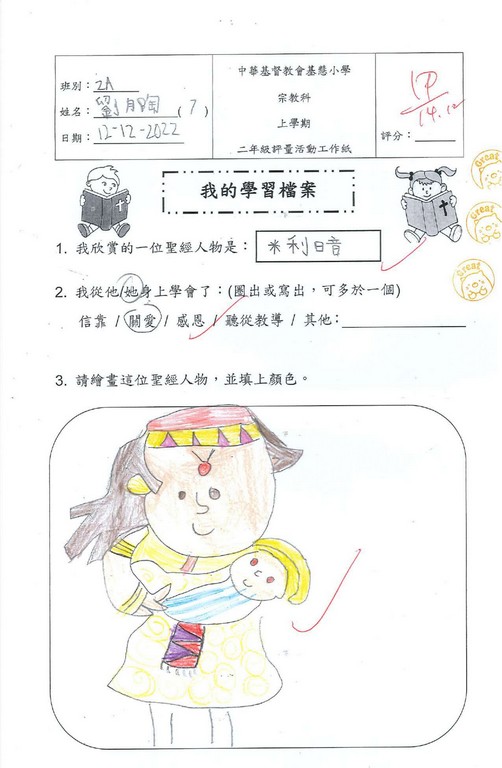 中華基督教會基慈小學
宗教科
上學期
二年級評量活動工作紙
班別：2A
姓名：劉 (7)
日期：12-12-2022
評分：甲
14.12
我的學習檔案
Great
Great
Great
1. 我欣賞的一位聖經人物是：米利日音
2. 我從他/她身上學會了：(圈出或寫出，可多於一個)
信靠 / 關愛 / 感恩 / 聽從教導 / 其他：
3. 請繪畫這位聖經人物，並填上顏色。